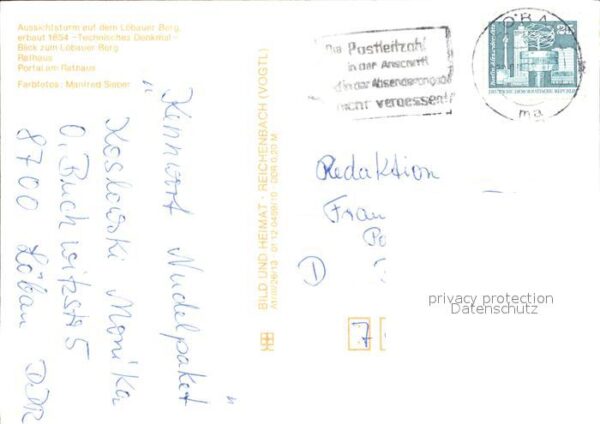 Aussichtsturm auf dem Löbauer Berg,
erbaut 1854 -Technisches Denkmal-
Blick zum Löbauer Berg
Rathaus
Portal am Rathaus
Farbfotos: Manfred Sieber
„Kennwort Nudelpaket"
Koslowski Monika
O. Buchwitzstr 5
8700 Löbau DDR
BILD UND HEIMAT · REICHENBACH (VOGTL)
A1/III/26/13 01 12 0459/10 · DDR 0,20 M
Die Postleitzahl
in der Anschrift
und in der Absenderangabe
nicht vergessen!
LÖBAU
25
DEUTSCHE DEMOKRATISCHE REPUBLIK
ma
Redaktion
Frau
D
7
privacy protection
Datenschutz